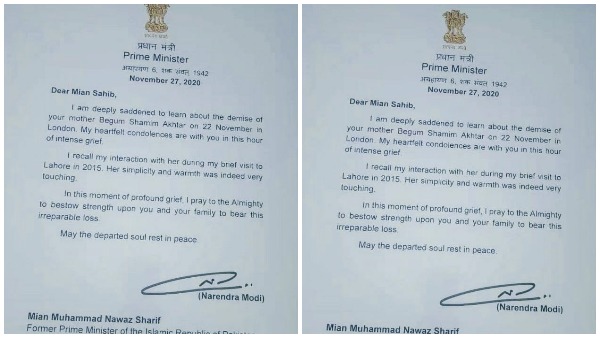 प्रधान मंत्री
Prime Minister
अग्रहायण 6, शक संवत् 1942
November 27, 2020
Dear Mian Sahib,
I am deeply saddened to learn about the demise of
your mother Begum Shamim Akhtar on 22 November in
London. My heartfelt condolences are with you in this hour
of intense grief.
I recall my interaction with her during my brief visit to
Lahore in 2015. Her simplicity and warmth was indeed very
touching.
In this moment of profound grief, I pray to the Almighty
to bestow strength upon you and your family to bear this
irreparable loss.
May the departed soul rest in peace.
(Narendra Modi)
Mian Muhammad Nawaz Sharif
Former Prime Minister of the Islamic Republic of
प्रधान मंत्री
Prime Minister
अग्रहायण 6, शक संवत् 1942
November 27, 2020
Dear Mian Sahib,
I am deeply saddened to learn about the demise of
your mother Begum Shamim Akhtar on 22 November in
London. My heartfelt condolences are with you in this hour
of intense grief.
I recall my interaction with her during my brief visit to
Lahore in 2015. Her simplicity and warmth was indeed very
touching.
In this moment of profound grief, I pray to the Almighty
to bestow strength upon you and your family to bear this
irreparable loss.
May the departed soul rest in peace.
(Narendra Modi)
Mian Muhammad Nawaz Sharif